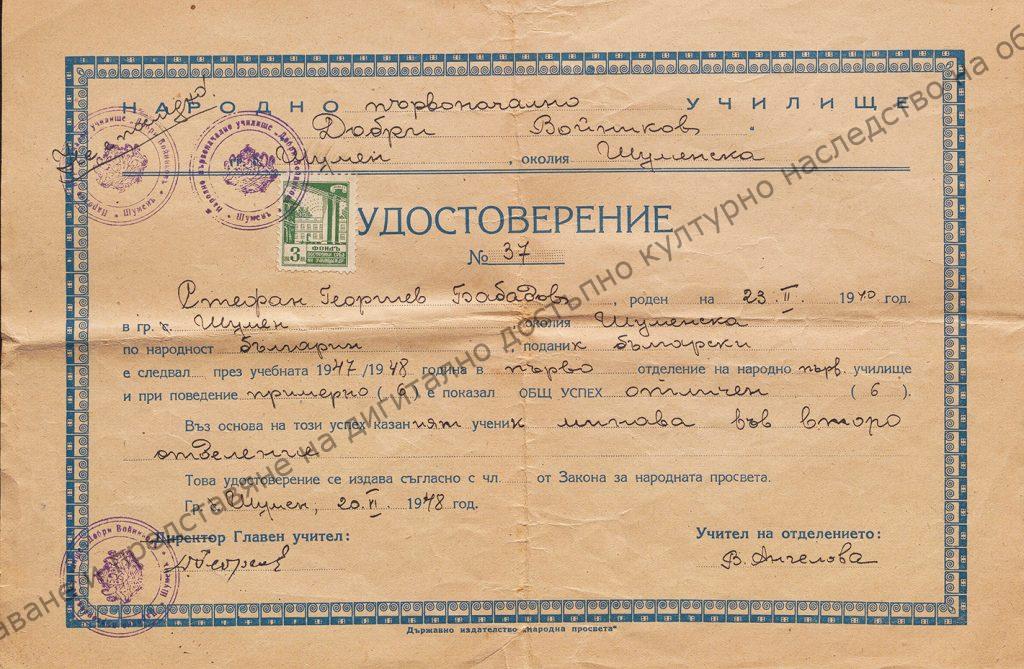 НАРОДНО първоначално УЧИЛИЩЕ
Добри Войников
Шумен, околия Шуменска
УДОСТОВЕРЕНИЕ
№ 37
Стефан Георгиев, роден на 23.II. 1940 год.
в гр. с. Шумен околия Шуменска
по народност българин, поданик български
е следвал през учебната 1947/1948 година в първо отделение на народно първ. училище
и при поведение примерно (6) е показал ОБЩ УСПЕХ отличен (6).
Въз основа на този успех казаният ученик минава във второ
отделение
Това удостоверение се издава съгласно с чл. от Закона за народната просвета.
Гр. с. Шумен, 20.VI. 1948 год.
Директор Главен учител:
Учител на отделението:
В. Ангелова
Държавно издателство „Народна просвета"
3 лв.
ФОНДЪ
Народно първоначално училище - Добри Войниковъ - Шуменъ
представяне на дигитално достъпно културно наследство на